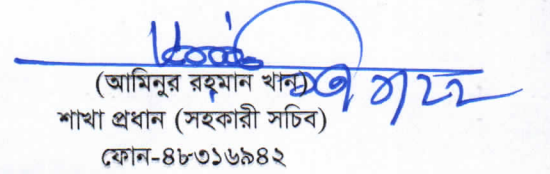 (আমিনুর রহমান খান)
শাখা প্রধান (সহকারী সচিব)
ফোন-৪৮৩১৬৯৪২